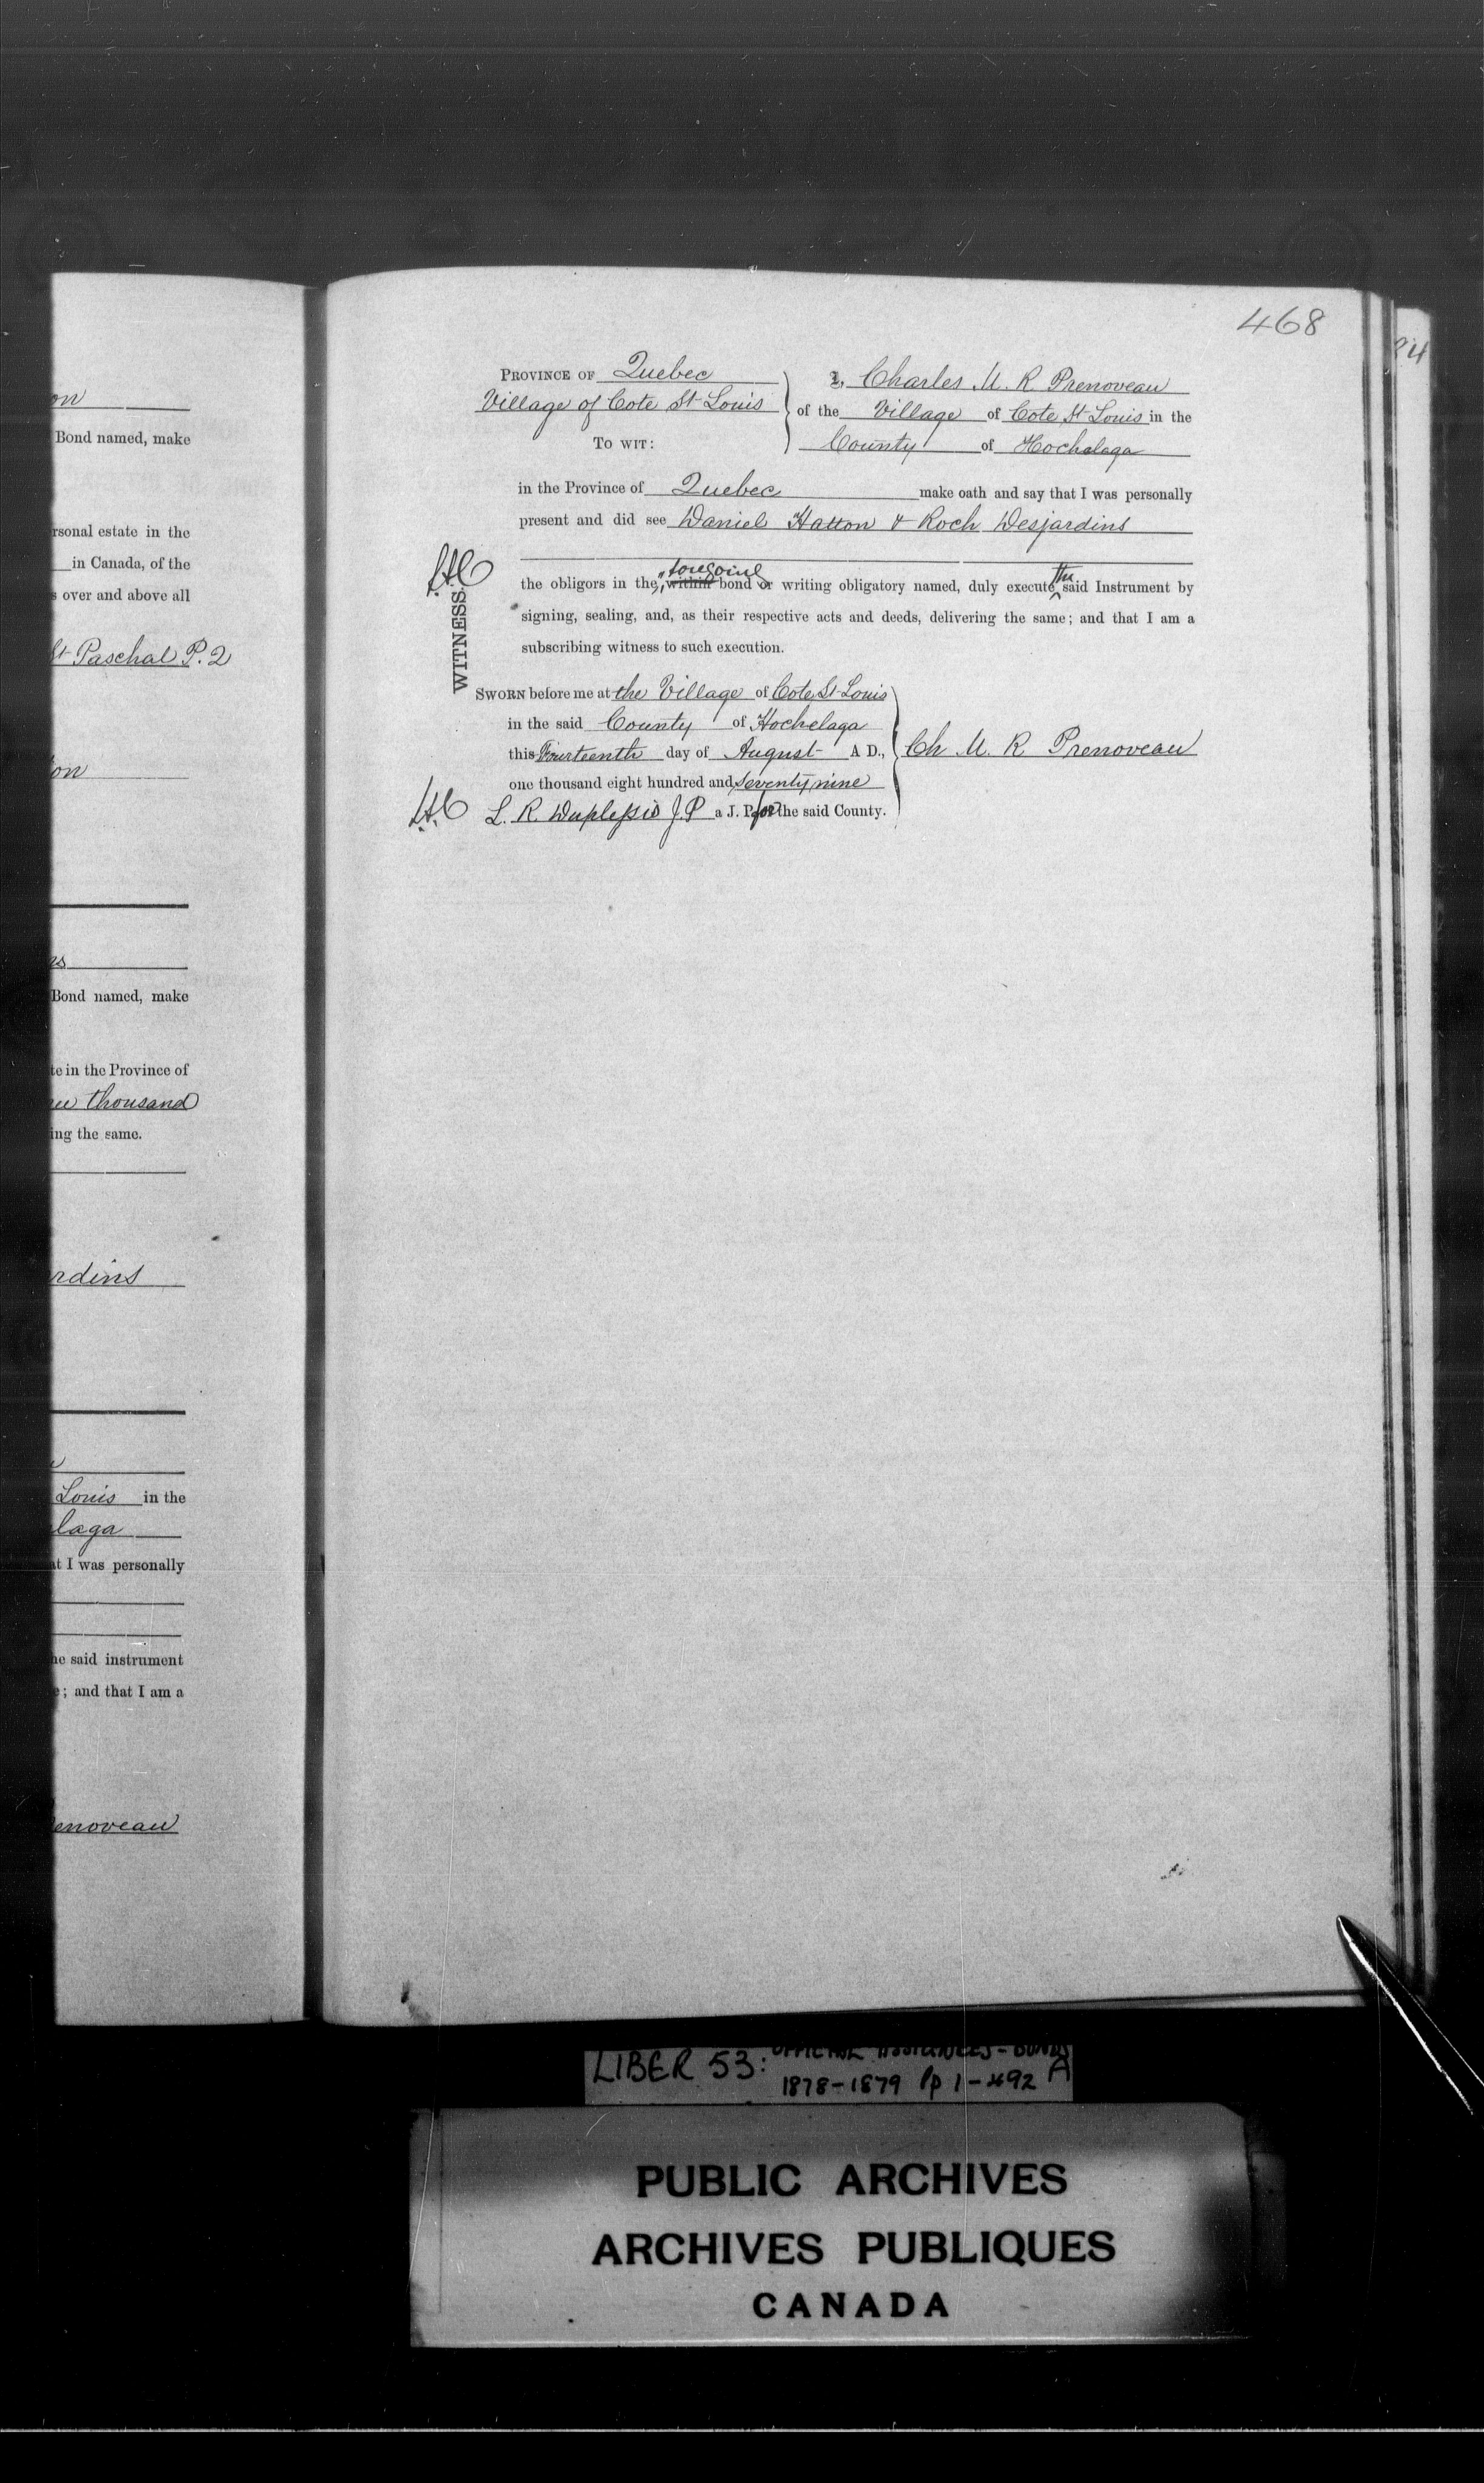 on
Bond named, make
rsonal estate in the
in Canada, of the
s over and above all
St Paschal P. 2
on
rs
Bond named, make
te in the Province of
thousand
ing the same.
rdins
Louis in the
laga
at I was personally
he said instrument
e; and that I am a
enoveau
468
PROVINCE OF Quebec
Village of Cote St Louis
TO WIT:
I, Charles M. R. Prenoveau
of the Village of Cote St Louis in the
County of Hochelaga
in the Province of Quebec make oath and say that I was personally
present and did see Daniel Hatton & Roch Desjardins
foregoing
the obligors in the within bond or writing obligatory named, duly execute the said Instrument by
signing, sealing, and, as their respective acts and deeds, delivering the same; and that I am a
subscribing witness to such execution.
WITNESS.
SWORN before me at the Village of Cote St Louis
in the said County of Hochelaga
this Fourteenth day of August A D.,
one thousand eight hundred and seventy nine
L. R. Duplessis J. P a J. P. for the said County.
Ch M. R Prenoveau
LIBER 53: OFFICIAL ASSIGNEES - BONDS
1878-1879 Pp 1-492 A
PUBLIC ARCHIVES
ARCHIVES PUBLIQUES
CANADA